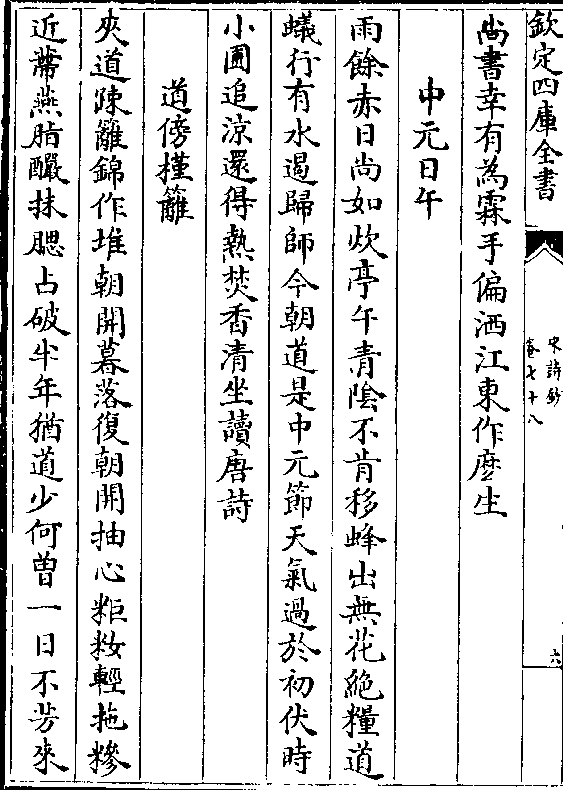 欽定四庫全書
宋詩鈔
卷七十八
六
尚書幸有為霖手偏洒江東作麽生
中元日午
雨餘赤日尚如炊亭午青陰不肯移蜂出無花絶糧道
蟻行有水遏歸師今朝道是中元節天氣過於初伏時
小圃追涼還得熱焚香清坐讀唐詩
道傍槿籬
夾道疎籬錦作堆朝開暮落復朝開抽心粔籹輕拖糝
近蔕燕脂釅抹腮占破半年猶道少何曽一日不芳來